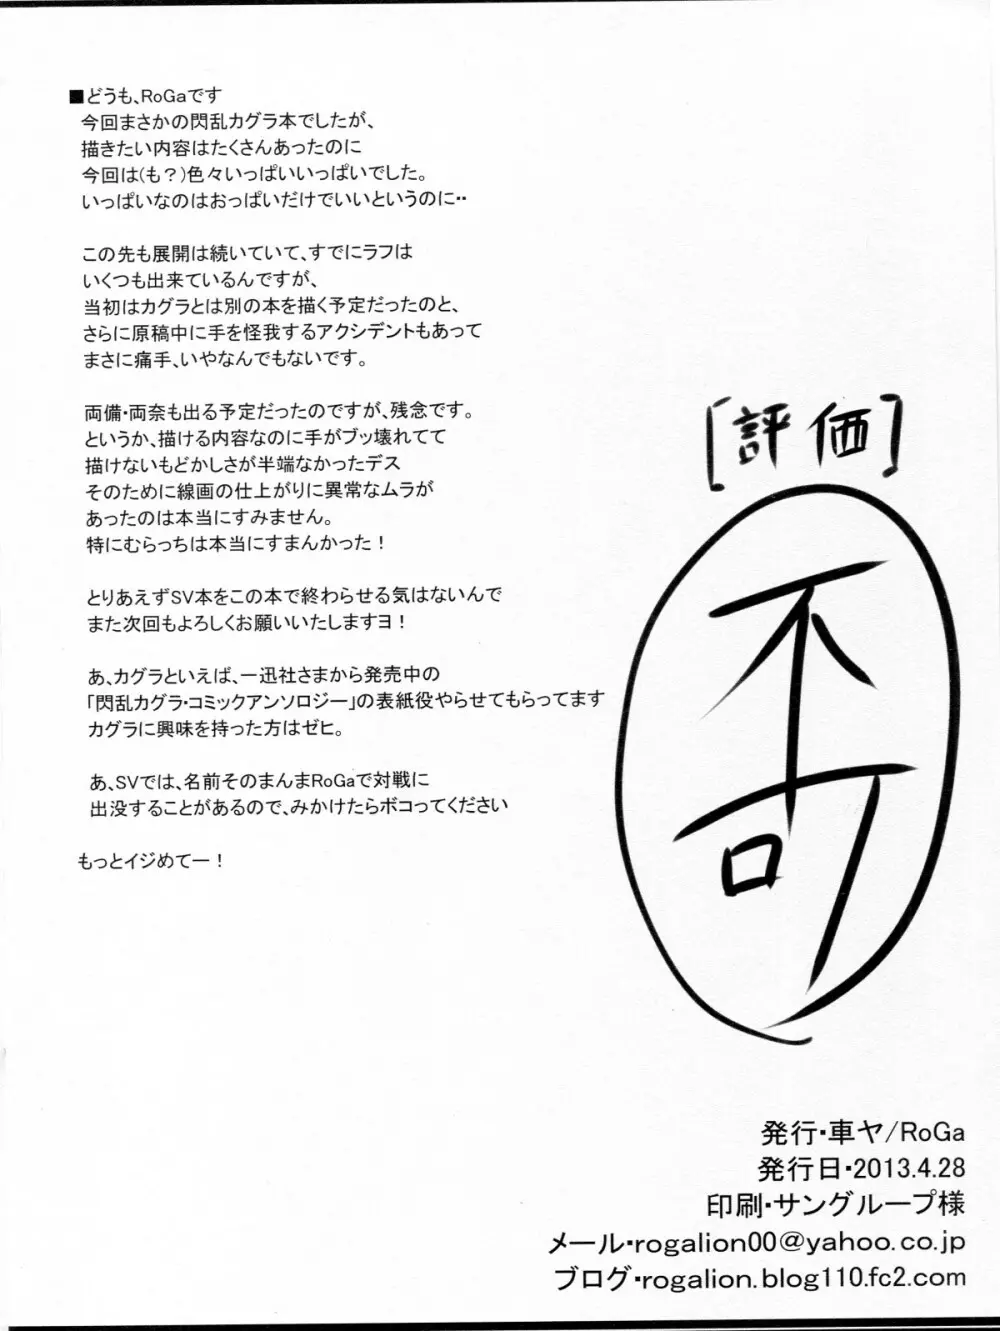 ■どうも、RoGaです
今回まさかの閃乱カグラ本でしたが、
描きたい内容はたくさんあったのに
今回は(も?)色々いっぱいいっぱいでした。
いっぱいなのはおっぱいだけでいいというのに‥
この先も展開は続いていて、すでにラフは
いくつも出来ているんですが、
当初はカグラとは別の本を描く予定だったのと、
さらに原稿中に手を怪我するアクシデントもあって
まさに痛手、いやなんでもないです。
両備・両奈も出る予定だったのですが、残念です。
というか、描ける内容なのに手がブッ壊れてて
描けないもどかしさが半端なかったデス
そのために線画の仕上がりに異常なムラが
あったのは本当にすみません。
特にむらっちは本当にすまんかった!
とりあえずSV本をこの本で終わらせる気はないんで
また次回もよろしくお願いいたしますヨ!
あ、カグラといえば、一迅社さまから発売中の
「閃乱カグラ・コミックアンソロジー」の表紙役やらせてもらってます
カグラに興味を持った方はゼヒ。
あ、SVでは、名前そのまんまRoGaで対戦に
出没することがあるので、みかけたらボコってください
もっとイジめてー!
[評価]
不可
発行・車ヤ/RoGa
発行日・2013.4.28
印刷・サングループ様
メール・rogalion00@yahoo.co.jp
ブログ・rogalion.blog110.fc2.com